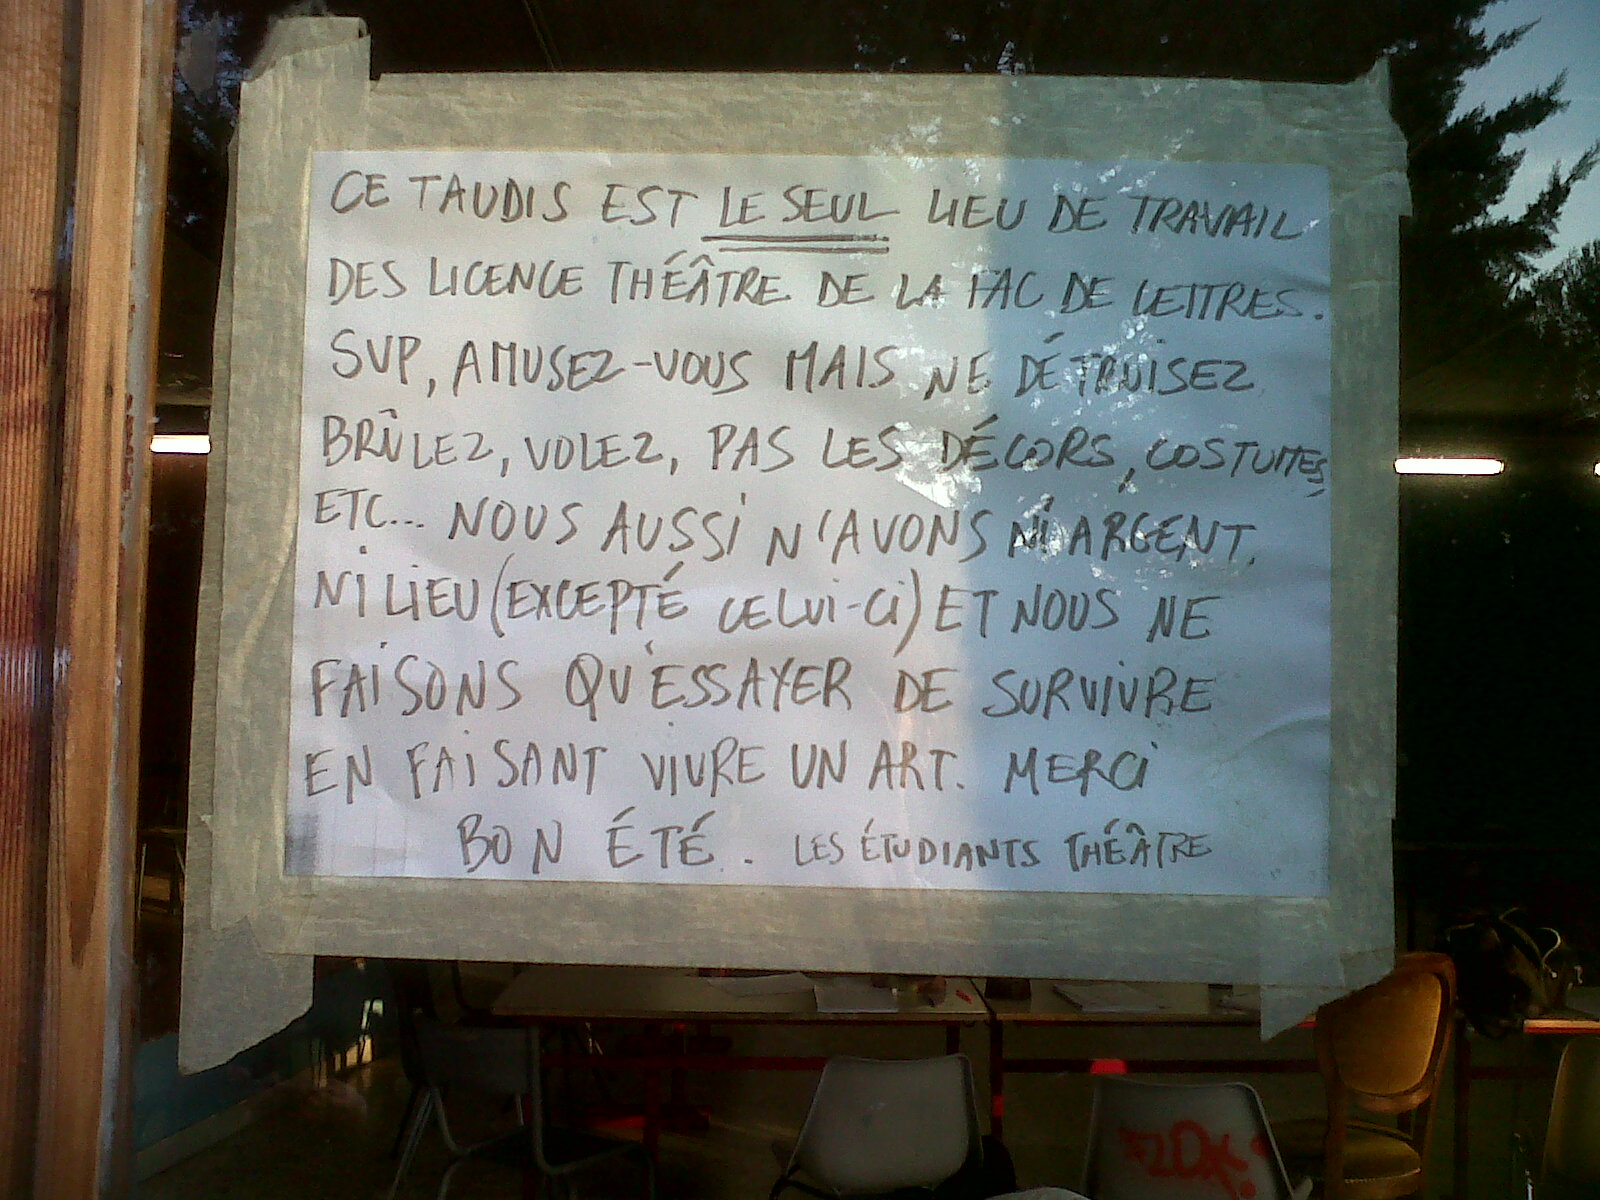 CE TAUDIS EST LE SEUL LIEU DE TRAVAIL
DES LICENCE THÉÂTRE DE LA FAC DE LETTRES.
SVP, AMUSEZ-VOUS MAIS NE DÉTRUISEZ,
BRÛLEZ, VOLEZ, PAS LES DÉCORS, COSTUMES,
ETC... NOUS AUSSI N'AVONS NI ARGENT,
NI LIEU (EXCEPTÉ CELUI-CI) ET NOUS NE
FAISONS QU'ESSAYER DE SURVIVRE
EN FAISANT VIVRE UN ART. MERCI
BON ÉTÉ. LES ÉTUDIANTS THÉÂTRE